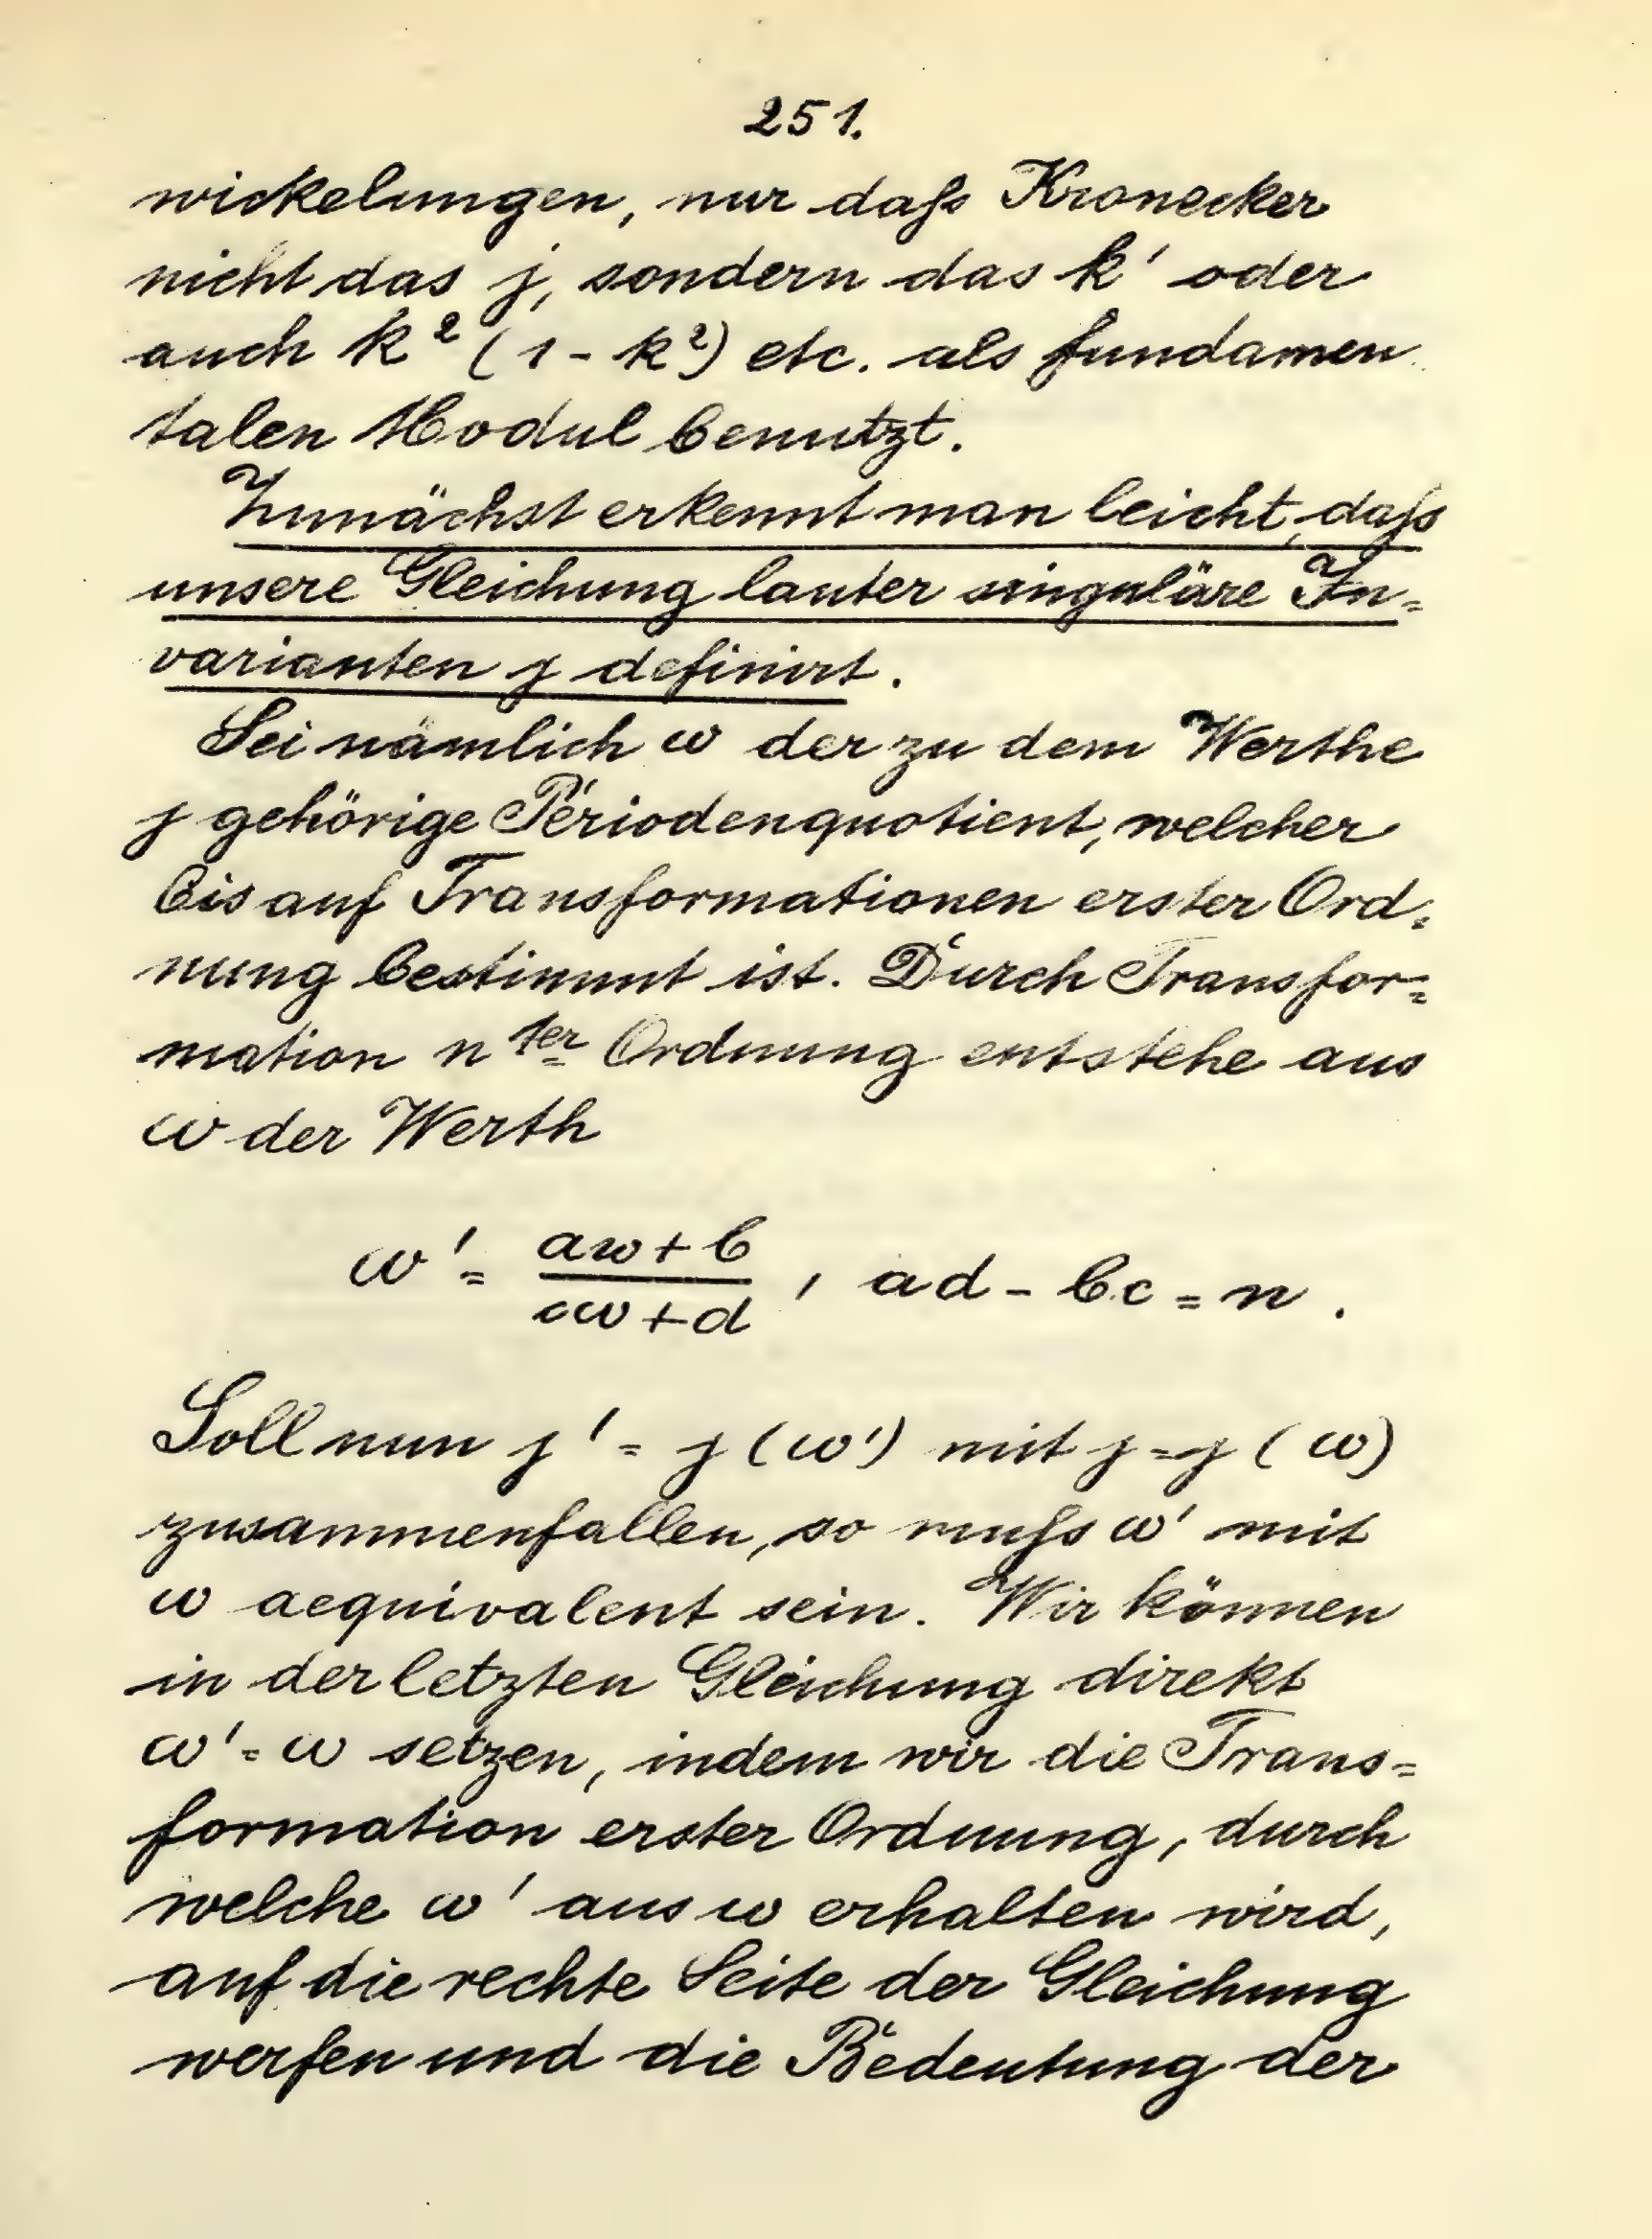 251.
wickelungen, nur daſs Kronecker
nicht das j, sondern das k' oder
auch k² (1 - k²) etc. als fundamen
talen Modul benutzt.
Zunächst erkennt man leicht, daſs
unsere Gleichung lauter singuläre In=
varianten j definirt.
Sei nämlich ω der zu dem Werthe
j gehörige Periodenquotient, welcher
bis auf Transformationen erster Ord=
nung bestimmt ist. Durch Transfor=
mation n ter Ordnung entstehe aus
ω der Werth
ω' = (aω + b)/(cω + d) , ad - bc = n .
Soll nun j' = j (ω') mit j = j (ω)
zusammenfallen, so muſs ω' mit
ω aequivalent sein. Wir können
in der letzten Gleichung direkt
ω' = ω setzen, indem wir die Trans=
formation erster Ordnung, durch
welche ω' aus ω erhalten wird,
auf die rechte Seite der Gleichung
werfen und die Bedeutung der